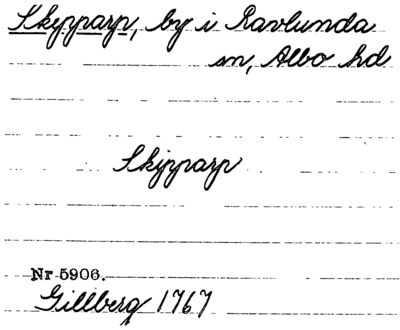 Skipparp, by i Ravlunda
sn, Albo hd
Skipparp
Nr 5906.
Gillberg 1767